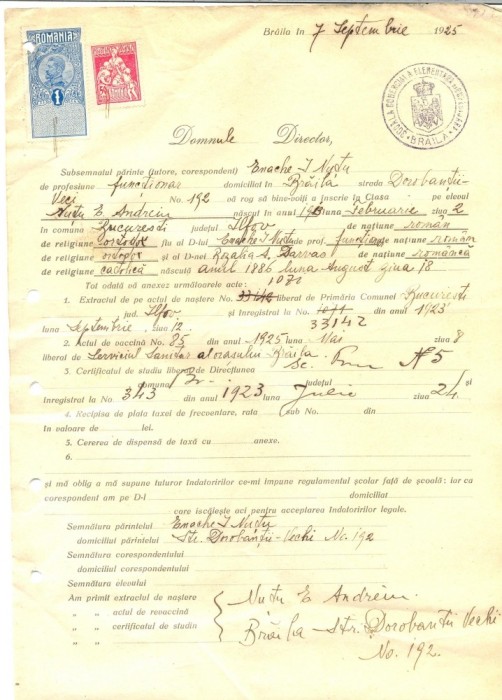 ROMANIA
1
Brăila în 7 Septembrie 1925
ȘCOALA COMERCIALĂ ELEMENTARĂ
BRĂILA
Domnule Director,
Subsemnatul părinte (tutore, corespondent) Enache I Nuțu
de profesiune funcționar domiciliat în Brăila strada Dorobanții-
Veci No. 192 vă rog să bine-voiți a înscrie în Clasa pe elevul
Nuțu E. Andrein născut în anul Februarie ziua 2
în comuna Bucuresti județul Ilfov de națiune român
de religiune ortodox fiu al D-lui Enache I Nuțu de prof. funcționar de națiune român
de religiune ortodox și al D-nei Rozalia A. Darvas de națiune românca
de religiune catolică născută anul 1886 luna August ziua 18
Tot odată vă anexez următoarele acte:
1071
1. Extractul de pe actul de naștere No. 33142 liberat de Primăria Comunei Bucuresti
jud. Ilfov și înregistrat la No. 1071 din anul 1923
33142
luna Septembrie ziua 12
2. Actul de vaccină No. 83 din anul 1925 luna Mai ziua 8
liberat de Serviciul Sanitar al orașului Brăila
3. Certificatul de studiu liberat de Direcțiunea Sc. Prim N 5
comuna Br. județul și
înregistrat la No. 343 din anul 1923 luna Iulie ziua 24
4. Recipisa de plata taxei de frecventare, rata sub No. din
în valoare de lei.
5. Cererea de dispensă de taxă cu anexe.
6.
și mă oblig a mă supune tuturor îndatoririlor ce-mi impune regulamentul școlar față de școală: iar ca
corespondent am pe D-l domiciliat
care iscălește aci pentru acceptarea îndatoririlor legale.
Semnătura părintelui Enache I Nuțu
domiciliul părintelui Str. Dorobanții-Vechi No. 192
Semnătura corespondentului
domiciliul corespondentului
Semnătura elevului
Am primit extractul de naștere Nuțu E Andrein.
„ „ actul de revaccină
„ „ certificatul de studiu Brăila Str. Dorobanții Vechi
„ „ No. 192.